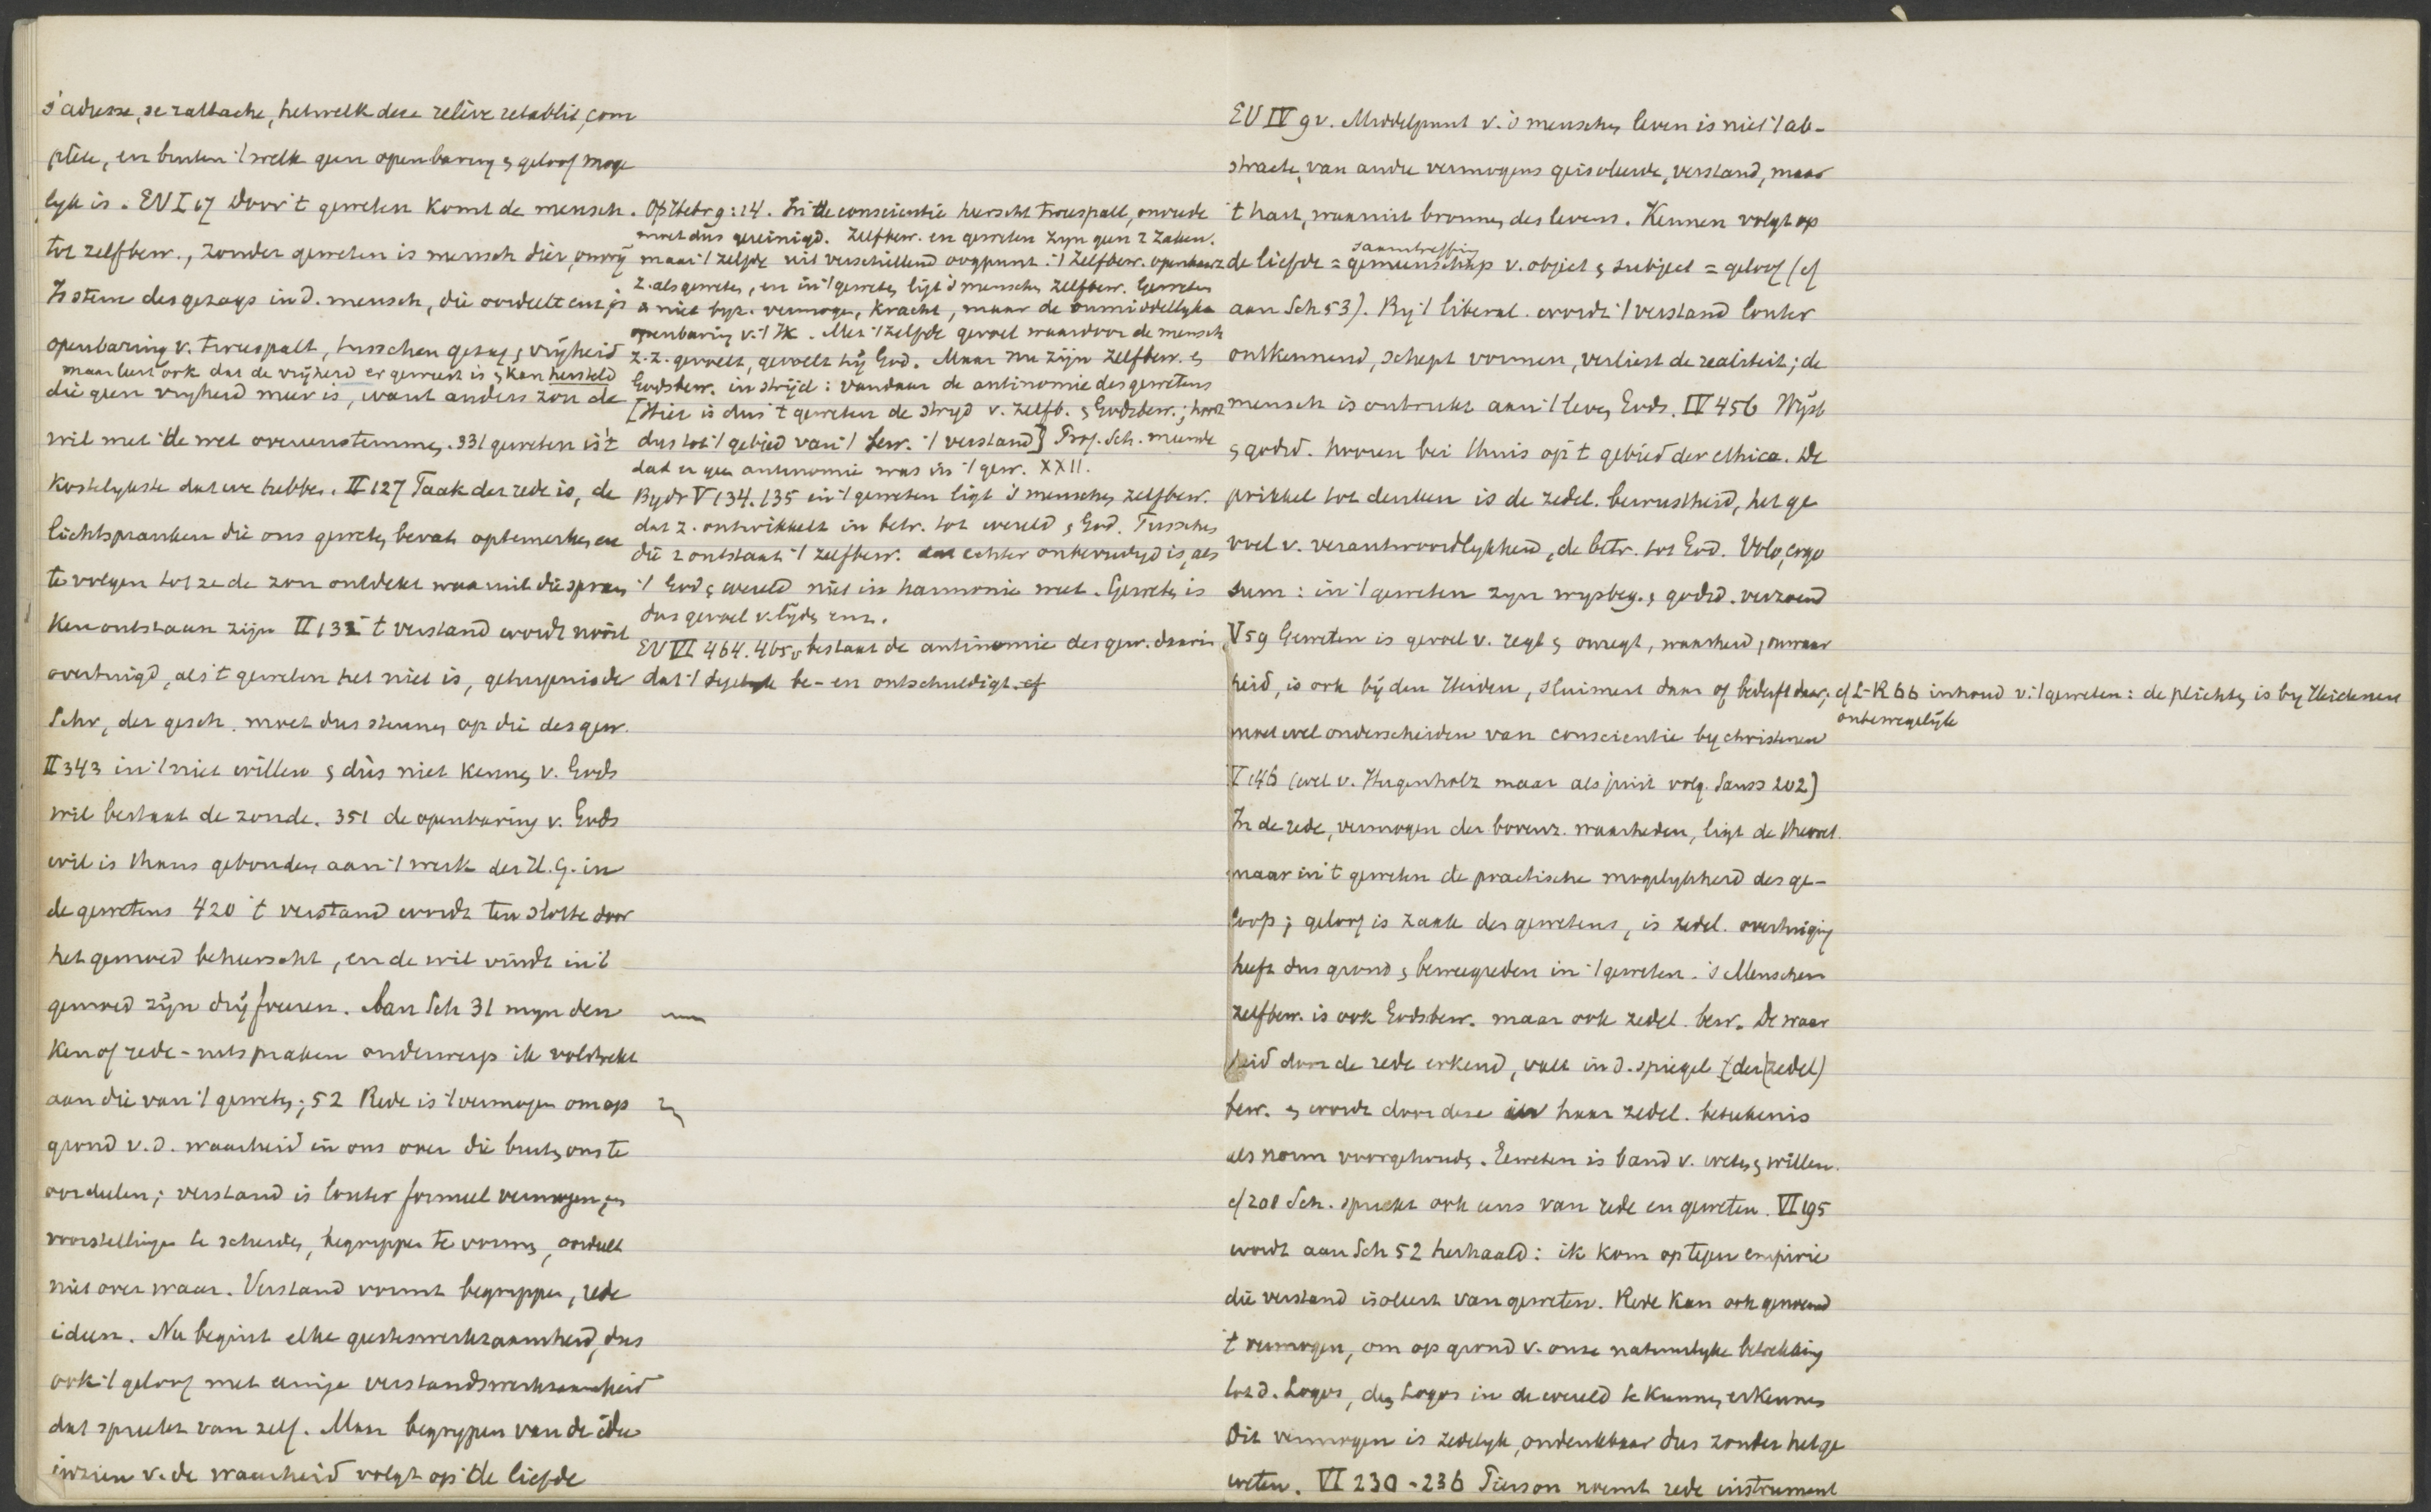 s'adresse, se rattache, hetwelk deze relève rétablit, com
plète, en buiten 't welk geen openbaring & geloof moge
lyk is. EV I 67 Door 't geweten komt de mensch
tot zelfbew., zonder geweten is mensch dier, onvrij
Is stem des gezags in d. mensch, die oordeelt en is
openbaring v. tweespalt, tusschen gezag & vrijheid
maar leert ook dat de vrijheid er geweest is & kan hersteld
die geen vryheid meer is, want anders zou de
wil met de wet overeenstemmen. 331 geweten is 't
kostelykste dat we hebben. II 127 Taak der rede is, de
lichtspranken die ons geweten bevat optemerken en
te volgen tot ze de zon ontdekt waaruit die spran
ken ontstaan zijn II 132 't verstand wordt nooit
overtuigd, als 't geweten het niet is, getuigenis de
Schr, der gesch. moet dus steunen op die des gew.
II 343 in 't niet willen & dus niet kennen v. Gods
wil bestaat de zonde. 351 de openbaring v. Gods
wil is thans gebonden aan 't werk der H. G. in
de gewetens 420 't verstand wordt ten slotte door
het gemoed beheerscht, en de wil vindt in 't
gemoed zijn drijfveeren. Aan Sch 31 myn den
ken of rede-uitspraken onderwerp ik volstrekt
aan die van 't geweten; 52 Rede is 't vermogen om op
grond v. d. waarheid in ons over die buiten ons te
oordeelen; verstand is louter formeel vermogen, om
voorstellingen te scheiden, begrippen te vormen, oordeelt
niet over waar. Verstand vormt begrippen, rede
ideen. Nu begint elke geesteswerkzaamheid, dus
ook 't geloof met eenige verstandswerkzaamheid
dat spreekt van zelf. Maar begrypen van de idee
inzien v. de waarheid volgt op de liefde
. Op Hebr 9:14. In de conscientie heerscht tweespalt, onvrede
moet dus gereinigd. Zelfbew. en geweten zyn geen 2 zaken.
maar 't zelfde uit verschillend oogpunt. 't Zelfbew. openbaart
z. als geweten, en in 't geweten ligt 's menschen zelfbew. Geweten
is niet byz. vermogen, kracht, maar de onmiddellyke
openbaring v. 't Ik. Met 't zelfde gevoel waardoor de mensch
z.z. gevoelt, gevoelt hij God. Maar nu zijn zelfbew. &
Godsbew. in strijd: vandaar de antinomie des gewetens
[Hier is dus 't geweten de stryd v. zelfb. & Godsbew.; hoort
dus tot 't gebied van 't bew. 't verstand] Prof. Sch. meende
dat er geen antinomie was in 't gew. XXII.
Bydr V 134.135 in 't geweten ligt 's menschen zelfbew.
dat z. ontwikkelt in betr. tot wereld & God. Tusschen
die 2 ontstaat 't zelfbew. dat echter onbevredigd is, als
't God & wereld niet in harmonie weet. Geweten is
dus gevoel v. lijden enz.
EV VI 464.465 bestaat de antinomie des gew. daarin
dat 't be- en ontschuldigt. cf
EV IV 9v. Middelpunt v. 's menschen leven is niet 't ab-
stracte, van andre vermogens geisoleerde, verstand, maar
't hart, waaruit bronnen des levens. Kennen volgt op
samentreffing
de liefde = gemeenschap v. object & subject = geloof (cf
aan Sch 53). By 't liberal. wordt 't verstand louter
ontkennend, schept vormen, verliest de realiteit; de
mensch is ontrukt aan 't leven Gods. IV 456 Wijsb
& godsd. hooren bei thuis op 't gebied der ethica. De
prikkel tot denken is de zedel. bewustheid, het ge
voel v. verantwoordlykheid, de betr. tot God. Volo, ergo
sum: in 't geweten zyn wysbeg. & godsd. verzoend
V 59 Geweten is gevoel v. regt & onregt, waarheid, onwaar
heid, is ook bij den Heiden, sluimert daar of bederft daar; cf L-R 66 inhoud v. 't geweten: de plichten is by Heidenen
onbewegelijk
moet wel onderscheiden van conscientie by christenen
V 146 (wel v. Hugenholz maar als juist volg. Sauss 202)
In de rede, vermogen der bovenz. waarheden, ligt de theoret.
maar in 't geweten de practische mogelykheid des ge-
loofs; geloof is zaak des gewetens, is zedel. overtuiging
heeft dus grond & beweegreden in 't geweten. 's Menschen
zelfbew. is ook Godsbew. maar ook zedel. bew. De waar
heid door de rede erkend, valt in d. spiegel (der (zedel)
bew. & wordt door deze in haar zedel. beteekenis
als norm voorgehouden. Geweten is band v. weten & willen.
cf 208 Sch. spreekt ook eens van rede en geweten. VI 195
wordt aan Sch 52 herhaald: ik kom op tegen empirie
die verstand isoleert van geweten. Rede kan ook genoemd
't vermogen, om op grond v. onze natuurlyke betrekking
tot d. Logos, den Logos in de wereld te kunnen erkennen
Dit vermogen is zedelyk, ondenkbaar dus zonder het ge
weten. VI 230-236 Pierson noemt rede instrument